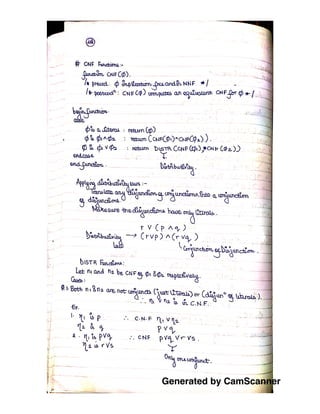 # CNF Functions :-
function CNF(Ø).
/* precond: Ø implication free and in NNF */
/* postcond: CNF(Ø) computes an equivalent CNF for Ø */
begin function
case
Ø is a literal : return (Ø)
Ø is Ø1 ^ Ø2 : return (CNF(Ø1) ^ CNF(Ø2)).
Ø is Ø1 v Ø2 : return DISTR (CNF(Ø1), CNF(Ø2))
endcase
end function.
Distributivity.
Applying distributivity laws :-
Translate any disjunction of conjunctions into a conjunction
of disjunctions
Make sure the disjunctions have only literals.
r V (p ^ q)
Distributivity → (r v p) ^ (r v q)
Law
Conjunction of Disjunction.
DISTR Function:
Let η1 and η2 be CNF of Ø1 & Ø2 respectively.
Cases:
Both η1 & η2 are not conjuncts (just literals) or (disjun of literals).
∴ η1 v η2 is in C.N.F.
Ex.
1. η1 is p ∴ C.N.F η1 v η2
η2 is q p v q
2. η1 is p v q ∴ CNF p v q v r v s.
η2 is r v s
Only one conjunct.
Generated by CamScanner